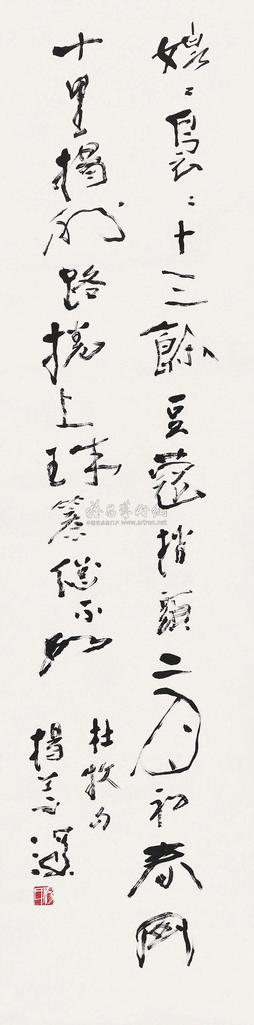 娉〻裊〻十三餘豆蔻梢頭二月初春风
十里揚州路捲上珠簾總不如
杜牧句
楊善深
雅昌藝術網
www.artron.net